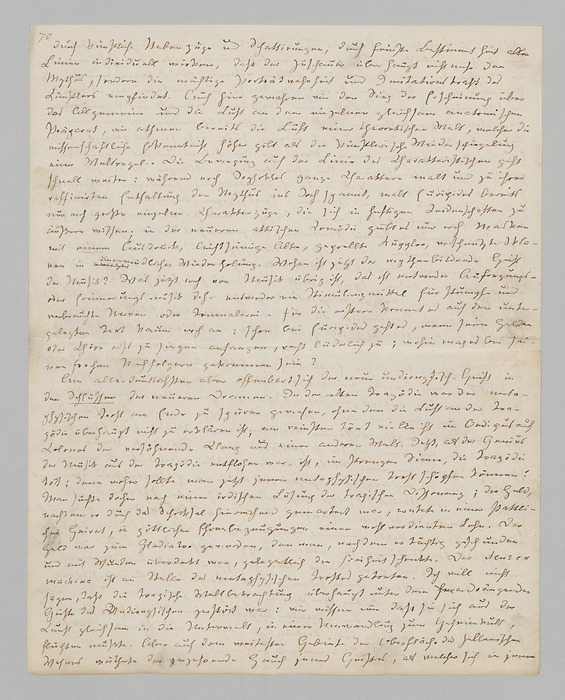 70
durch künstliche Nebenzüge und Schattirungen, durch feinste Bestimmtheit aller
Linien individuell wirken, daß der Zuschauer überhaupt nicht mehr den
Mythus, sondern die mächtige Porträtwahrheit und Imitationskraft des
Künstlers empfindet. Auch hier gewahren wir den Sieg der Erscheinung über
das Allgemeine und die Lust an dem einzelnen gleichsam anatomischen
Präparat, wir athmen bereits die Luft einer theoretischen Welt, welcher die
wissenschaftliche Erkenntniß höher gilt als die künstlerische Wiederspiegelung
einer Weltregel. Die Bewegung auf der Linie des Charakteristischen geht
schnell weiter: während noch Sophokles ganze Charaktere malt und zu ihrer
raffinirten Entfaltung den Mythus ins Joch spannt, malt Euripides bereits
nur noch große einzelne Charakterzüge, die sich in heftigen Leidenschaften zu
äußern wissen: in der neueren attischen Komödie giebt es nur noch Masken
mit einem Ausdrucke, leichtsinnige Alte, geprellte Kuppler, verschmitzte Skla-
ven in unermüdlicher Wiederholung. Wohin ist jetzt der mythenbildende Geist
der Musik? Was jetzt noch von Musik übrig ist, das ist entweder Aufregungs-
oder Erinnerungsmusik d.h. entweder ein Stimulanzmittel für stumpfe und
verbrauchte Nerven oder Tonmalerei. Für die erstere kommt es auf den unter-
gelegten Text kaum noch an: schon bei Euripides geht es, wenn seine Helden
oder Chöre erst zu singen anfangen, recht lüderlich zu; wohin mag es bei sei-
nen frechen Nachfolgern gekommen sein?
Am allerdeutlichsten aber offenbart sich der neue undionysische Geist in
den Schlüssen der neueren Dramen. In der alten Tragödie war der meta-
physische Trost am Ende zu spüren gewesen, ohne den die Lust an der Tra-
gödie überhaupt nicht zu erklären ist; am reinsten tönt vielleicht im Oedipus auf
Kolonos der versöhnende Klang aus einer anderen Welt. Jetzt, als der Genius
der Musik aus der Tragödie entflohen war, ist, im strengen Sinne, die Tragödie
todt: denn woher sollte man jetzt jenen metaphysischen Trost schöpfen können?
Man suchte daher nach einer irdischen Lösung der tragischen Dissonanz; der Held,
nachdem er durch das Schicksal hinreichend gemartert war, erntete in einer stattli-
chen Heirat, in göttlichen Ehrenbezeugungen einen wohlverdienten Lohn. Der
Held war zum Gladiator geworden, dem man, nachdem er tüchtig geschunden
und mit Wunden überdeckt war, gelegentlich die Freiheit schenkte. Der deus ex
machina ist an Stelle des metaphysischen Trostes getreten. Ich will nicht
sagen, daß die tragische Weltbetrachtung überhaupt unter dem herandrängenden
Geiste des Undionysischen zerstört war: wir wissen nur daß sie sich aus der
Kunst gleichsam in die Unterwelt, in einer Entartung zum Geheimkult,
flüchten mußte. Aber auf dem weitesten Gebiete der Oberfläche des hellenischen
Wesens wüthete der zehrende Hauch jenes Geistes, als welcher sich in jener